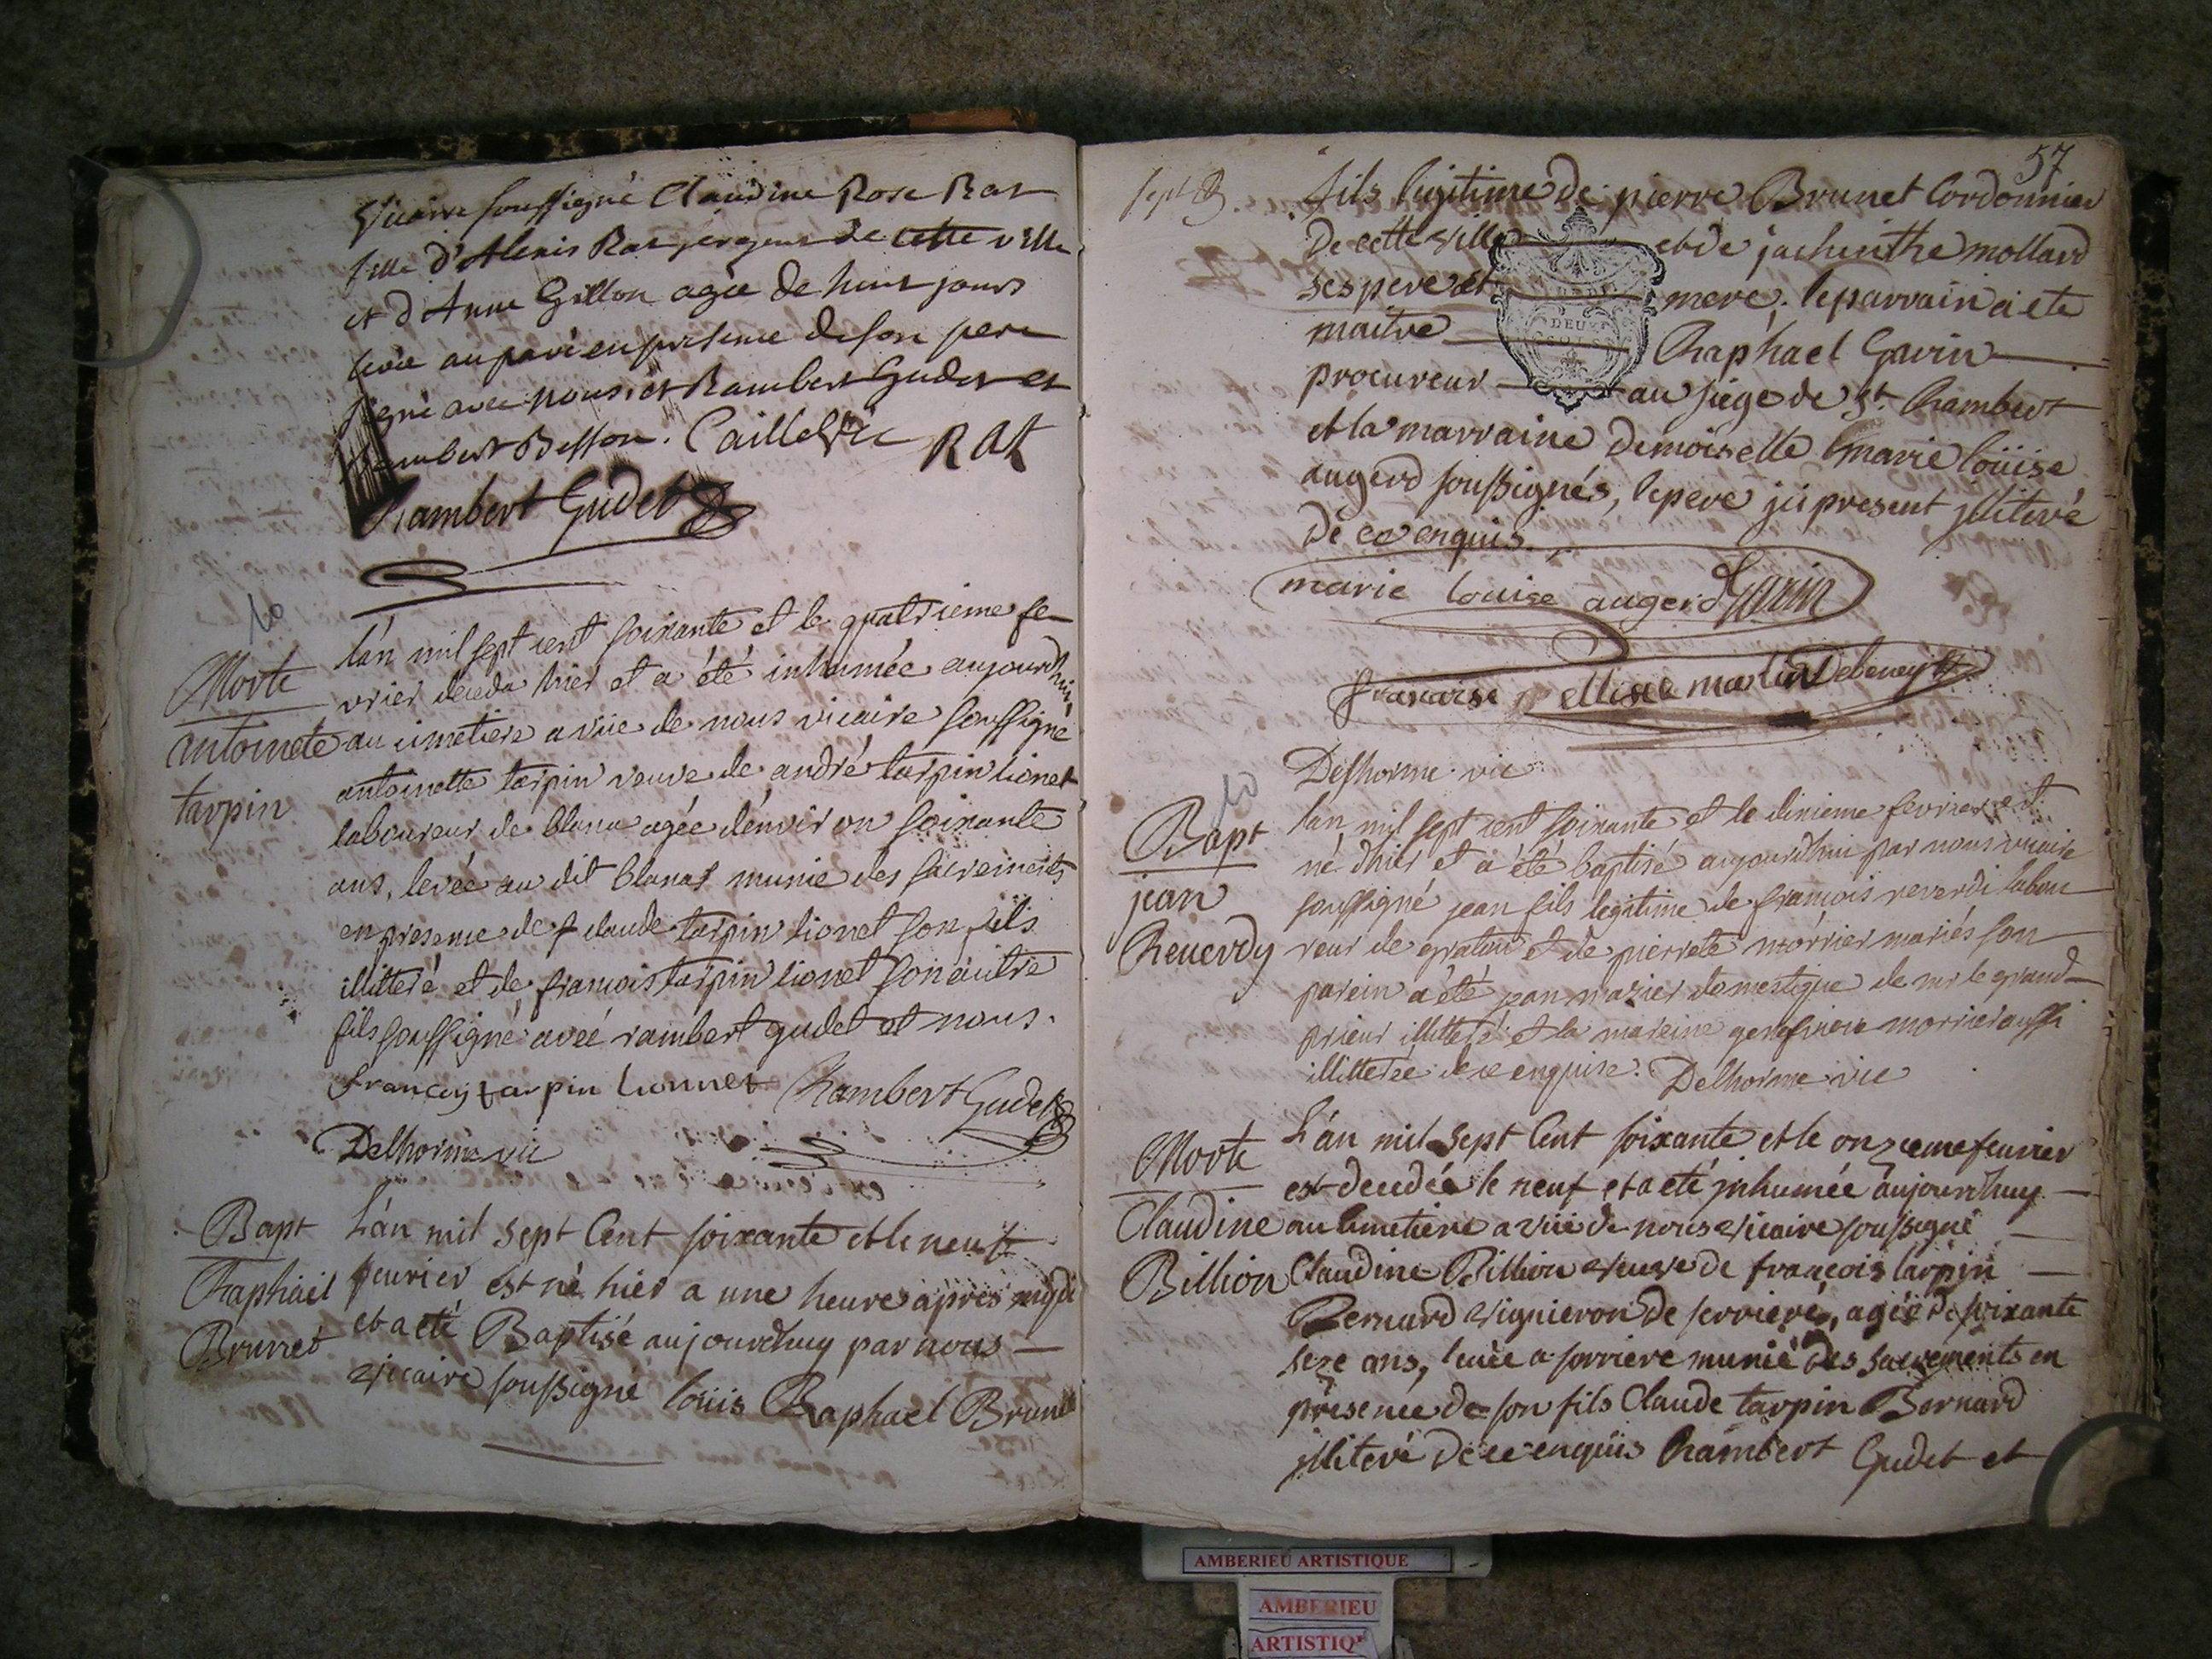 vicaire soussigné Claudine Rose Rat
fille d'Alexis Rat sergent de cette ville
et d'Anne Gillon agée de huit jours
levée au pavé en presence de son pere
signé avec nous et Rambert Gudet et
Rambert Besson. Caillet vic RAt
Rambert Gudet
10
Morte
antoinete
tarpin
l'an mil sept cent soixante et le quatrieme fe-
vrier deceda hier et a été inhumée aujourdhui
au cimetiere a vüe de nous vicaire soussigné
antoinette tarpin veuve de andré tarpin lionet
laboureur de blanas agée d'environ soixante
ans, levée au dit blanas munie des sacrements
en presence de claude tarpin lionet son fils
illitteré et de francois tarpin lionet son autre
fils soussigné avec rambert gudet et nous.
francois tarpin lionnet Rambert Gudet
Delhorme vic
Bapt
Raphäel
Brunet
L'an mil sept Cent soixante et le neuf
feurier est né hier a une heure après midi
et a eté Baptisé aujourdhuy par nous
vicaire soussigné loüis Raphael Brunet
57
sept
fils legitime de pierre Brunet Cordonnier
de cette ville et de jachinthe mollard
ses pere et mere, le parrain a ete
maitre Raphael Gavin
procureur au siége de St. Rambert
et la marraine demoiselle marie loüise
augerd soussignés, le pere ici present jlliteré
de ce enquis.
DEUX
marie louise augerd Garin
francoise Debeney
Delhorme vic
10
Bapt
jean
Reverdy
l'an mil sept cent soixante et le dixieme fevrier est
né d'hier et a été baptisé aujourdhui par nous vicaire
soussigné jean fils legitime de francois reverdi labou
reur de gratoux et de pierrete morrier mariés son
parein a été jean mazier domestique de mr le grand
prieur illitteré et la mareine genevieve morrier aussi
illitterée de ce enquise. Delhorme vic
Morte
Claudine
Billion
L'an mil sept Cent soixante et le onzieme feurier
est decedée le neuf et a eté jnhumée aujourdhuy
au Cimetiere a vüe de nous vicaire soussigné
Claudine Billion veuve de francois tarpin
Bernard vigneron de serriere, agée de soixante
seze ans, levée a serriere munie des sacrements en
présence de son fils Claude tarpin Bernard
jlliteré de ce enquis Rambert Gudet et
AMBERIEU ARTISTIQUE
AMBERIEU
ARTISTIQ